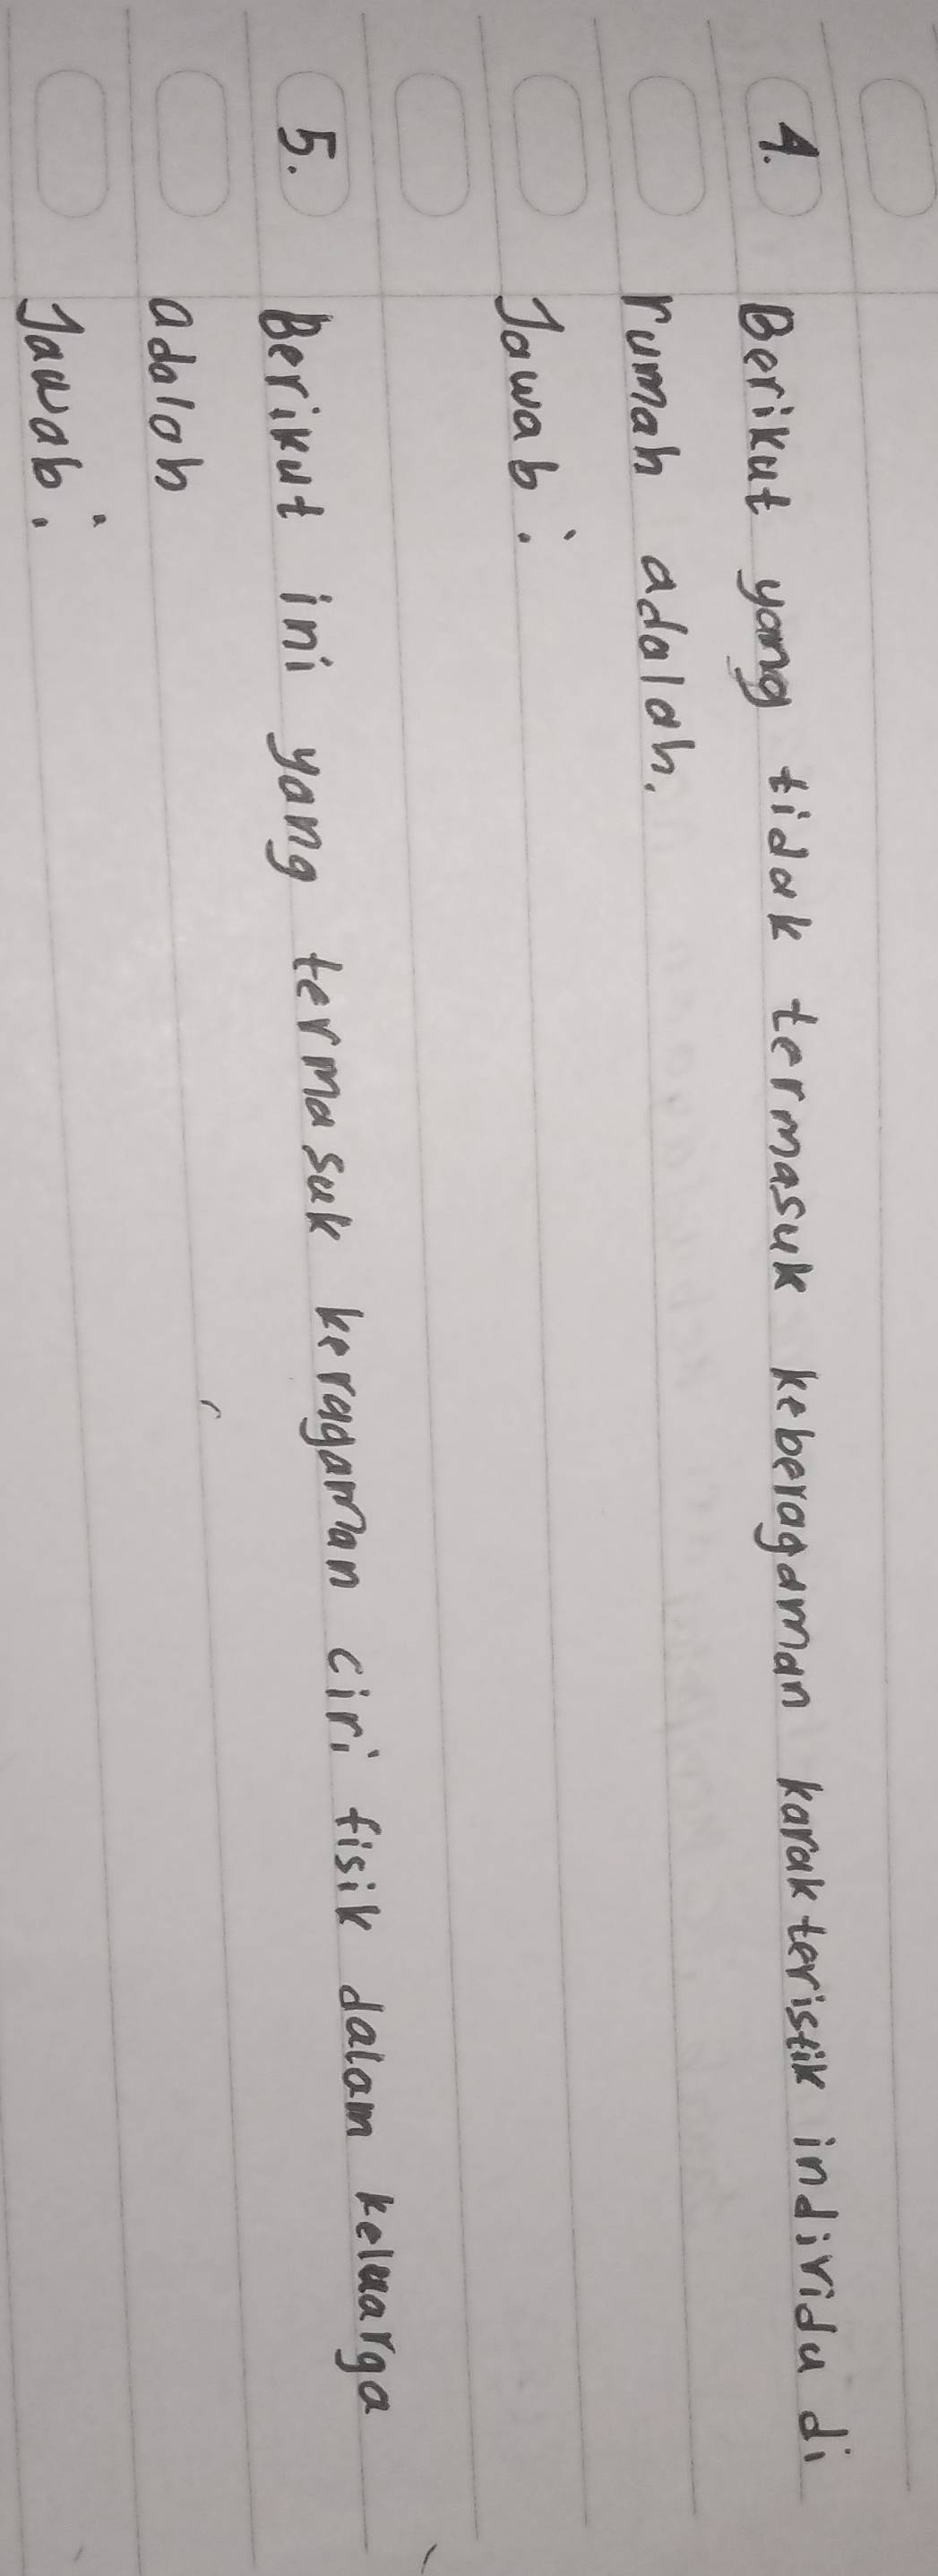 4. Berikut yang tidak termasuk keberagaman karakteristik individu di
rumah adalah.
Jawab :
5. Berikut ini yang termasuk keragaman ciri fisik dalam keluarga
adalah
Jawab :